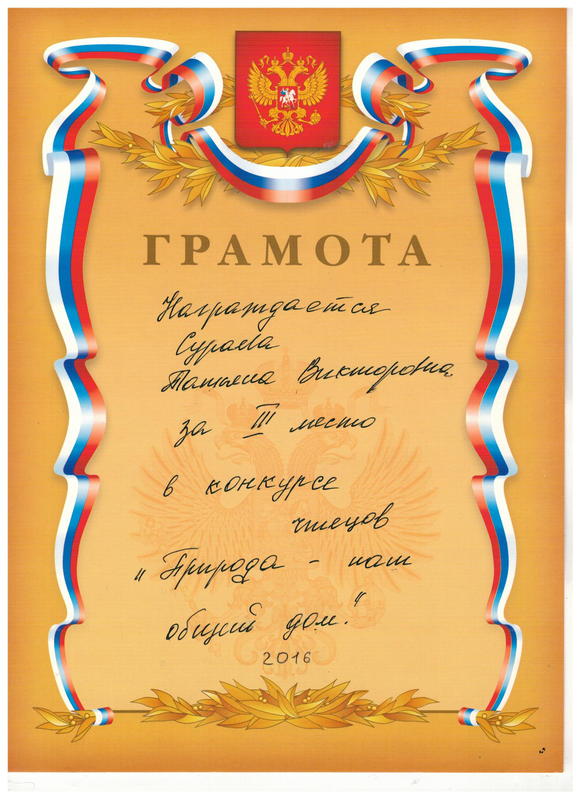 ГРАМОТА
Награждается
Сураева
Татьяна Викторовна
за III место
в конкурсе
чтецов
"Природа - наш
общий дом."
2016